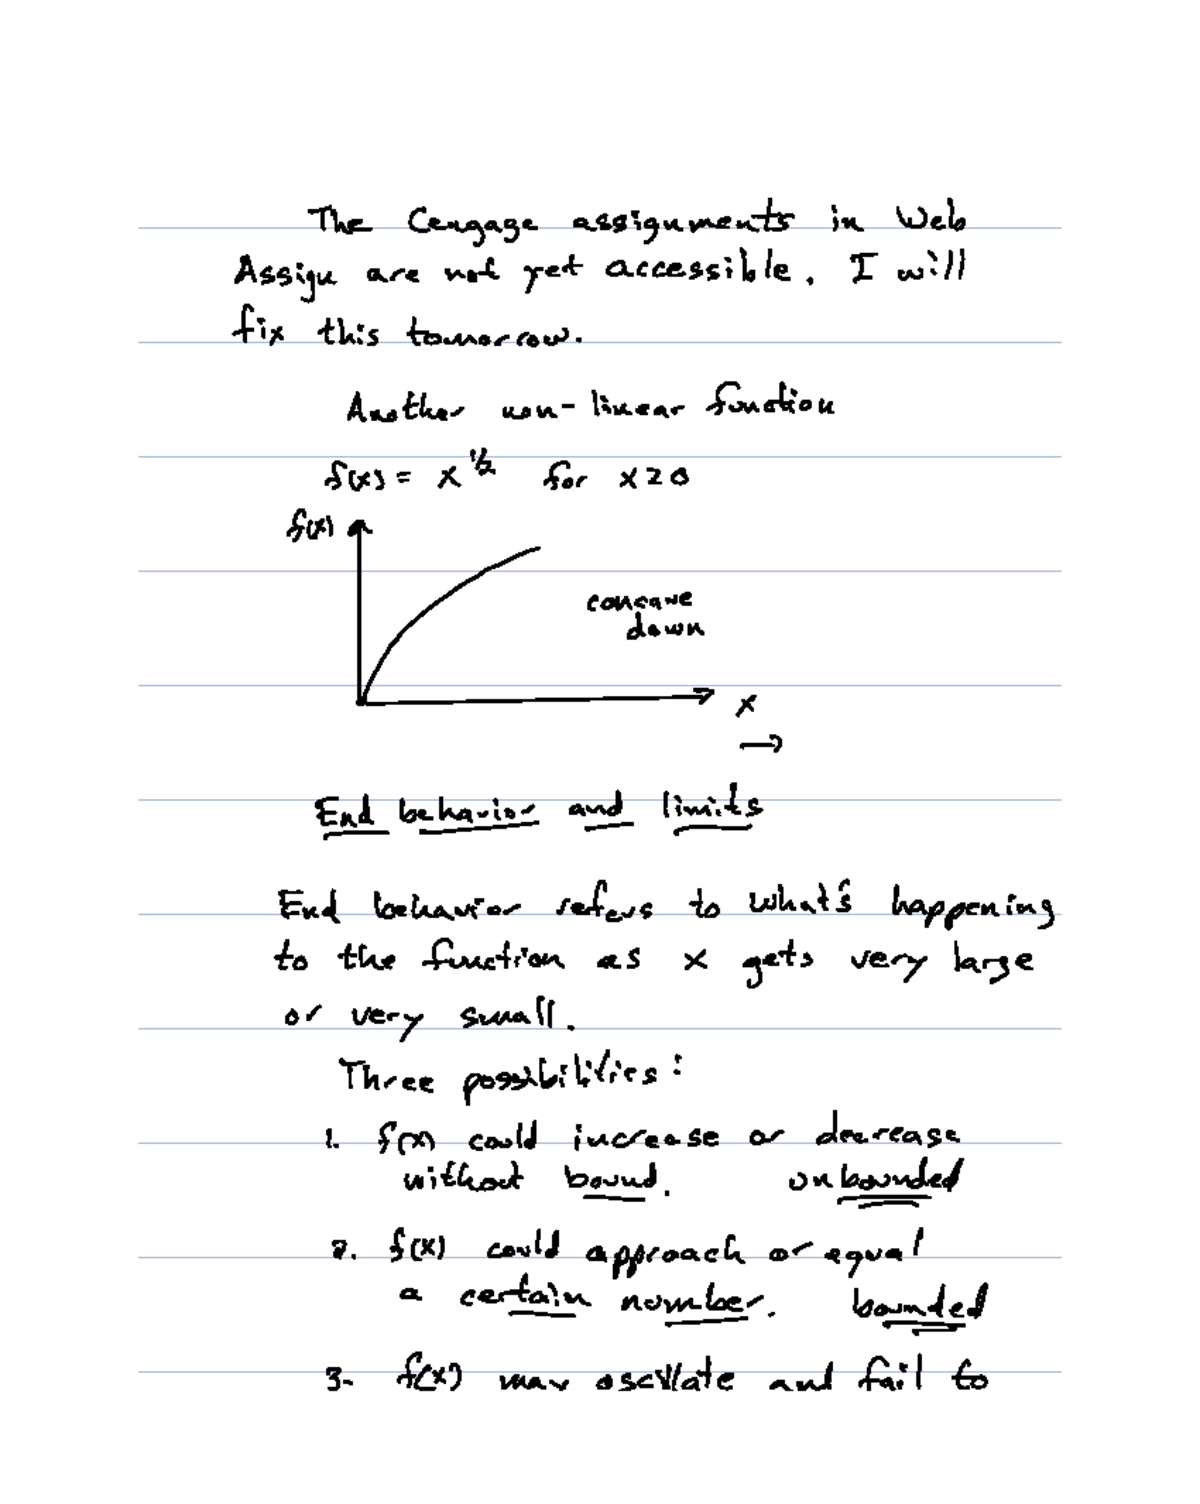 The Cengage assignments in Web
Assign are not yet accessible. I will
fix this tomorrow.
Another non-linear function
f(x) = x^1/2 for x≥0
f(x)
concave
down
x
→
End behavior and limits
End behavior refers to what's happening
to the function as x gets very large
or very small.
Three possibilities:
1. f(x) could increase or decrease
without bound. unbounded
2. f(x) could approach or equal
a certain number. bounded
3. f(x) may oscillate and fail to